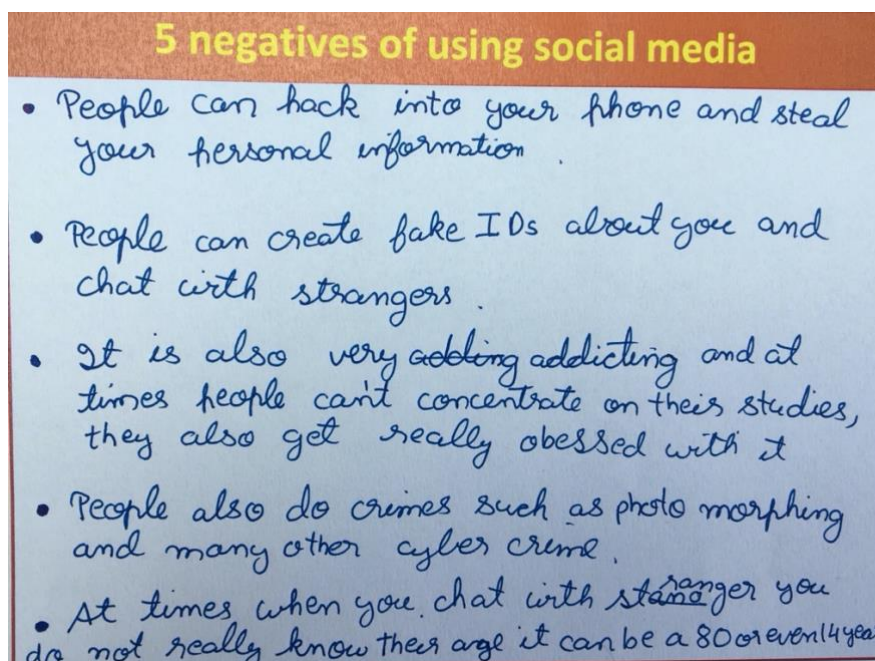 5 negatives of using social media
• People can hack into your phone and steal
your personal information.
• People can create fake IDs about you and
chat with strangers.
• It is also very adding addicting and at
times people can't concentrate on their studies,
they also get really obessed with it
• People also do crimes such as photo morphing
and many other cyber crime.
• At times when you chat with stranger you
do not really know their age it can be a 80 or even 14 year